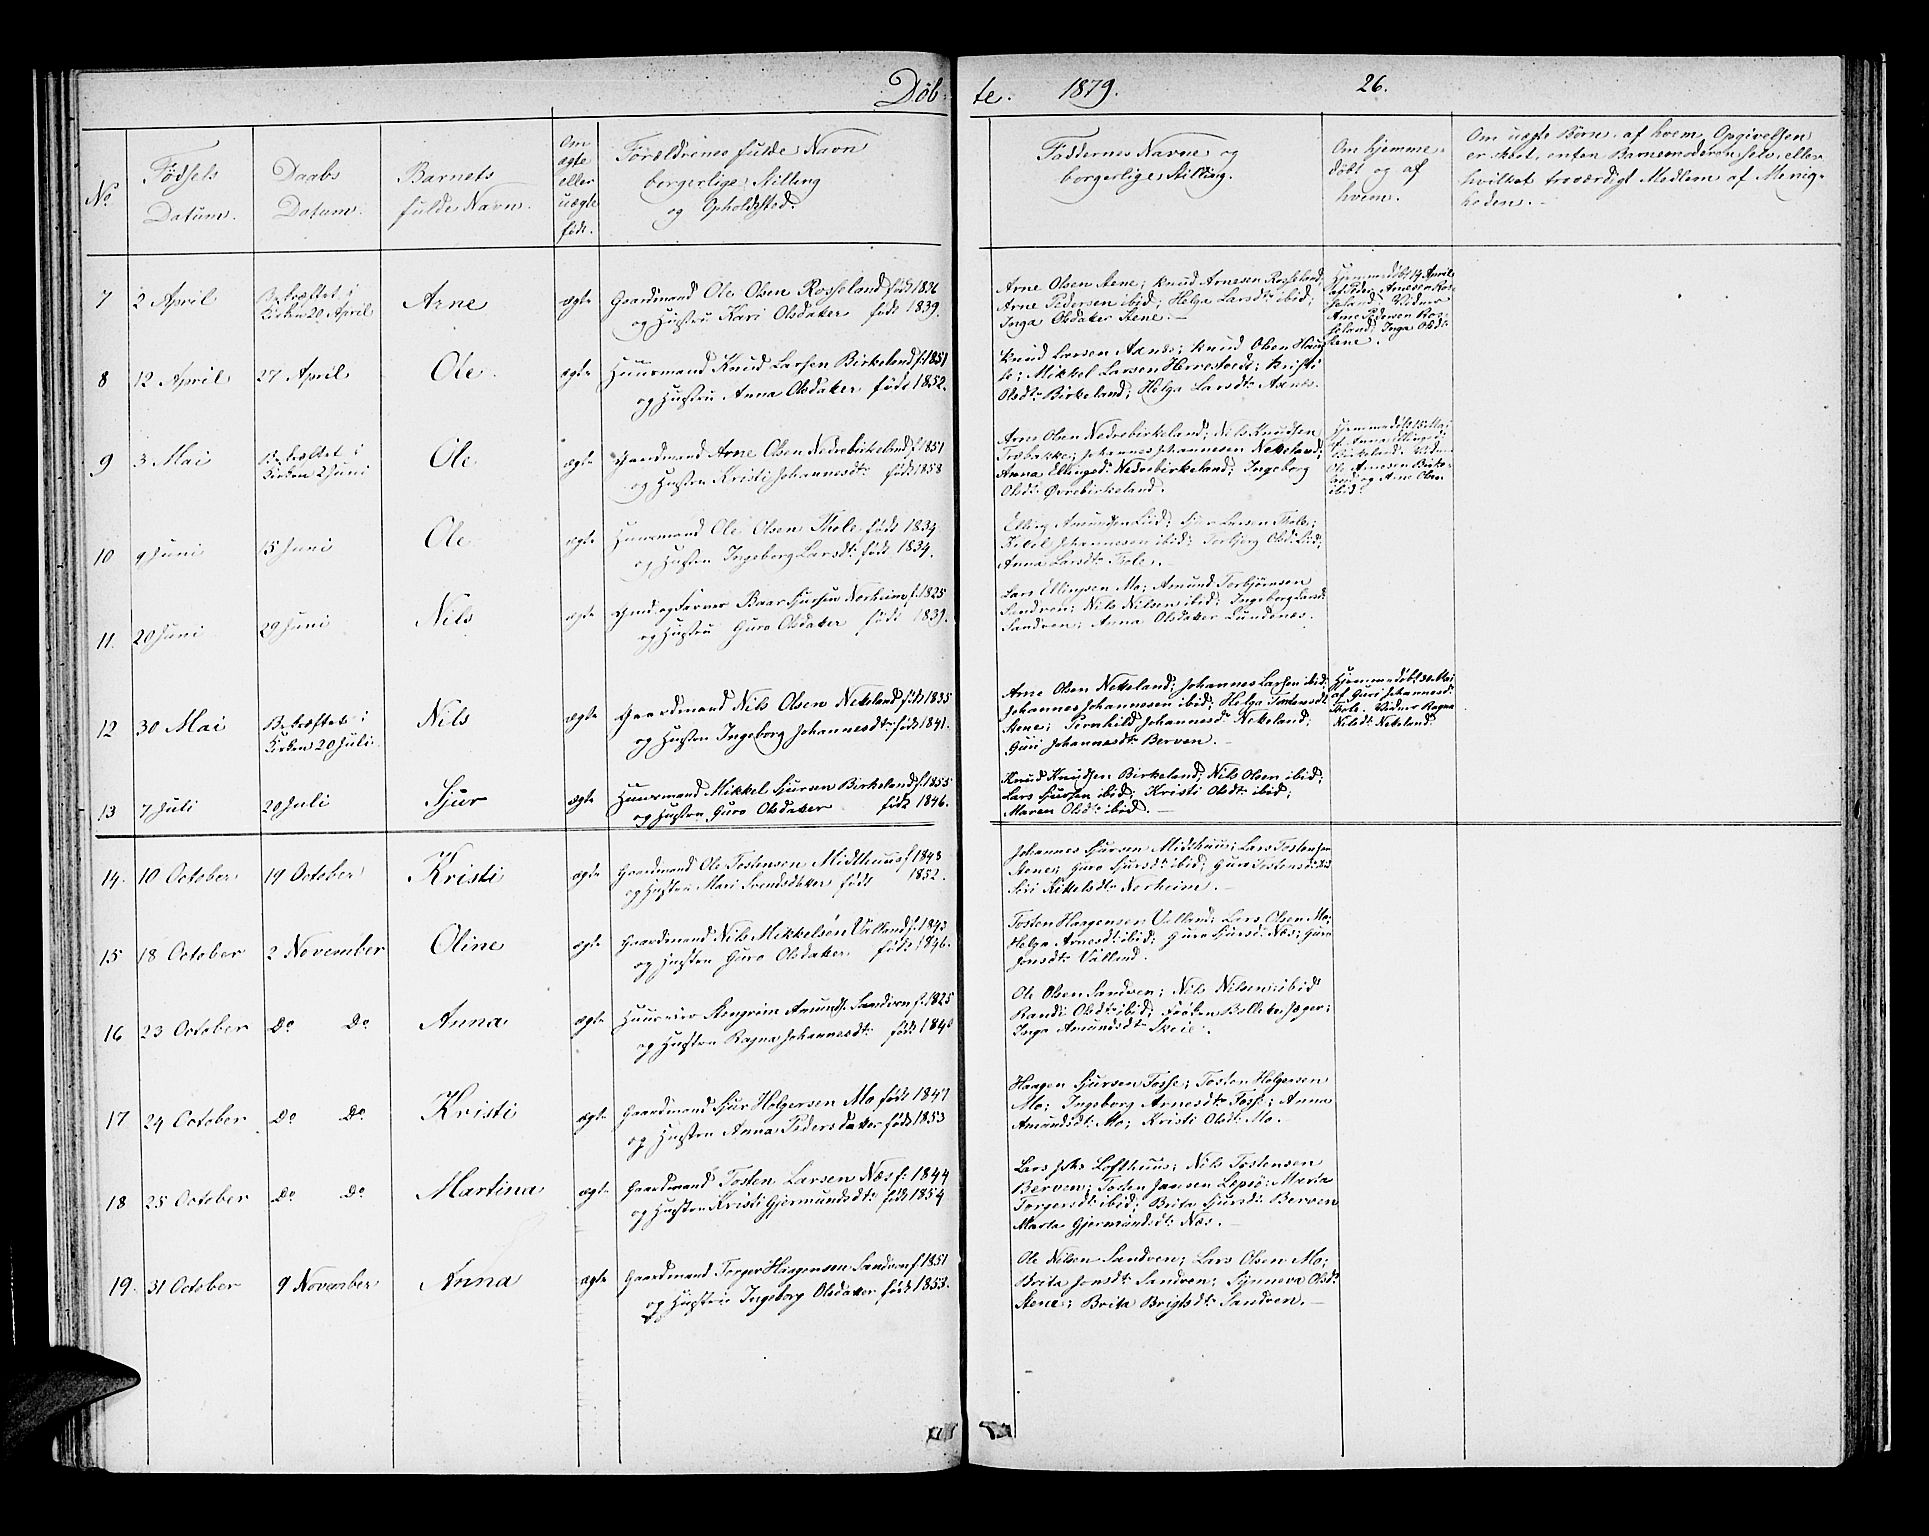 Døb-
te. 1879. 26.
No
Fødsels
Datum.
Daabs
Datum.
Barnets
fulde Navn.
Om
ægte
eller
uægte
født.
Forældrenes fulde Navn
borgerlige Stilling
og Opholdsted.
Faddernes Navne og
borgerlige Stilling.
Om hjemme-
døbt og af
hvem.
Om uægte Børn, af hvem Opgivelsen
er skeet, enten Barnemoderen selv, eller
hvilket troværdigt Medlem af Menig-
heden.
7 2 April
Bekræftet i
Kirken 20 April
Arne
ægte
Gaardmand Ole Olsen Rosseland født 1836
og Hustru Kari Olsdatter født 1839.
Arne Olsen Stene; Knud Arnesen Rosseland;
Arne Pedersen ibid; Helga Larsdtr ibid;
Inga Olsdatter Stene.
Hjemmedøbt 14 April
af Peder Arnesen Ros-
seland. Vidner
Arne Pedersen Ros-
seland; Inga Olsdr
Stene.
8 12 April 27 April Ole ægte
Huusmand Knud Larsen Birkeland f. 1851
og Hustru Anna Olsdatter født 1852.
Knud Larsen Axnes; Knud Olsen Haug
se; Mikkel Larsen Herrestvedt; Kristi
Olsdtr Birkeland; Helga Larsdtr Axnes.
9 3 Mai
Bekræftet i
Kirken 2 Juni
Ole
ægte
Gaardmand Arne Olsen Nedrebirkeland f. 1851
og Hustru Kristi Johannesdtr født 1858
Arne Olsen Nedrebirkeland; Nils Knudsen
Trobakke; Johannes Johannesen Nekeland;
Anna Ellingsd: Nedrebirkeland; Ingeborg
Olsdtr Øvrebirkeland.
Hjemmedøbt 15 Mai
af Anna Ellingsd:
Birkeland. Vidner
Ole Arnesen Birke-
land og Arne Olsen
ibid.
10 9 Juni 15 Juni Ole ægte
Huusmand Ole Olsen Thole født 1834
og Hustru Ingeborg Larsdtr født 1834.
Elling Amundsen Lud; Sjur Larsen Thole;
Ketil Johannesen ibid; Torbjørg Olsd: Lud;
Anna Larsdtr Thole.
11. 20 Juni 29 Juni Nils ægte
Baar Sjursen Norheim f. 1825
og Hustru Guro Olsdatter født 1839.
Lars Ellingsen Mo; Amund Torbjørnsen
Sandven; Nils Nilsen ibid; Ingeborg Larsd:
Sandven; Anna Olsdatter Lundenæs.
12 30 Mai
Bekræftet i
Kirken 20 Juli
Nils
ægte
Gaardmand Nils Olsen Nekeland født 1835
og Hustru Ingeborg Johannesdtr født 1841.
Arne Olsen Nekeland; Johannes Larsen ibid;
Johannes Johannesen ibid; Helga Tostensdtr
Stene; Jernhild Johannesd: Nekeland;
Guri Johannesdtr Berven.
Hjemmedøbt 30 Mai
af Guri Johannesd:
Thole. Vidner Ragna
Nilsdtr Nekeland.
13 7 Juli 20 Juli Sjur ægte
Huusmand Mikkel Sjursen Birkeland f. 1855
og Hustru Guro Olsdatter født 1846.
Knud Knudsen Birkeland; Nils Olsen ibid;
Lars Sjursen ibid; Kristi Olsdtr ibid;
Maren Olsdtr ibid.
14. 10 October 19 October Kristi ægte
Gaardmand Ole Tostensen Midthuus f 1843
og Hustru Mari Svendsdatter født 1852.
Johannes Sjursen Midthuus; Lars Tostensen
Stene; Guro Sjursdtr ibid; Guro Tostensd: ibid
Siri Kittelsdtr Norheim.
15 18 October 2 November Oline ægte
Gaardmand Nils Mikkelsøn Valland f. 1843
og Hustru Guro Olsdatter født 1846.
Tosten Haagensen Valland; Lars Olsen Mo;
Helga Arnesdtr ibid; Guro Sjursd: Næs; Guro
Jonsdtr Valland.
16 23 October Do Do Anna ægte
Kongrim Amunds. Sandven f. 1825
og Hustru Ragna Johannesdtr født 1840
Ole Olsen Sandven; Nils Nilsen ibid
Randi Olsdtr ibid; Frøken Bollette Jæger;
Inga Amundsdtr Skeie.
17 24 October Do Do Kristi ægte
Gaardmand Sjur Holgersen Mo født 1847
og Hustru Anna Pedersdatter født 1853
Haagen Sjursen Fosse; Tosten Holgersen
Mo; Ingeborg Arnesdtr Fosse; Anna
Amundsdtr Mo; Kristi Olsdtr Mo.
18 25 October Do Do Martina ægte
Gaardmand Tosten Larsen Næs f: 1844
og Hustru Kristi Gjermundsdtr født 1854
Lars Johs Lofthuus; Nils Tostensen
Berven; Tosten Jansen Lepsø; Marta
Torgersdtr ibid; Brita Sjursd: Berven
Marta Gjermundsdtr Næs.
19. 31 October 9 November Anna ægte
Gaardmand Torger Haagensen Sandven f 1851
og Hustru Ingeborg Olsdatter født 1853.
Ole Nilsen Sandven; Lars Olsen Mo;
Brita Jonsdtr Sandven; Synneva Olsdr
Stene; Brita Brigtsdtr Sandven.